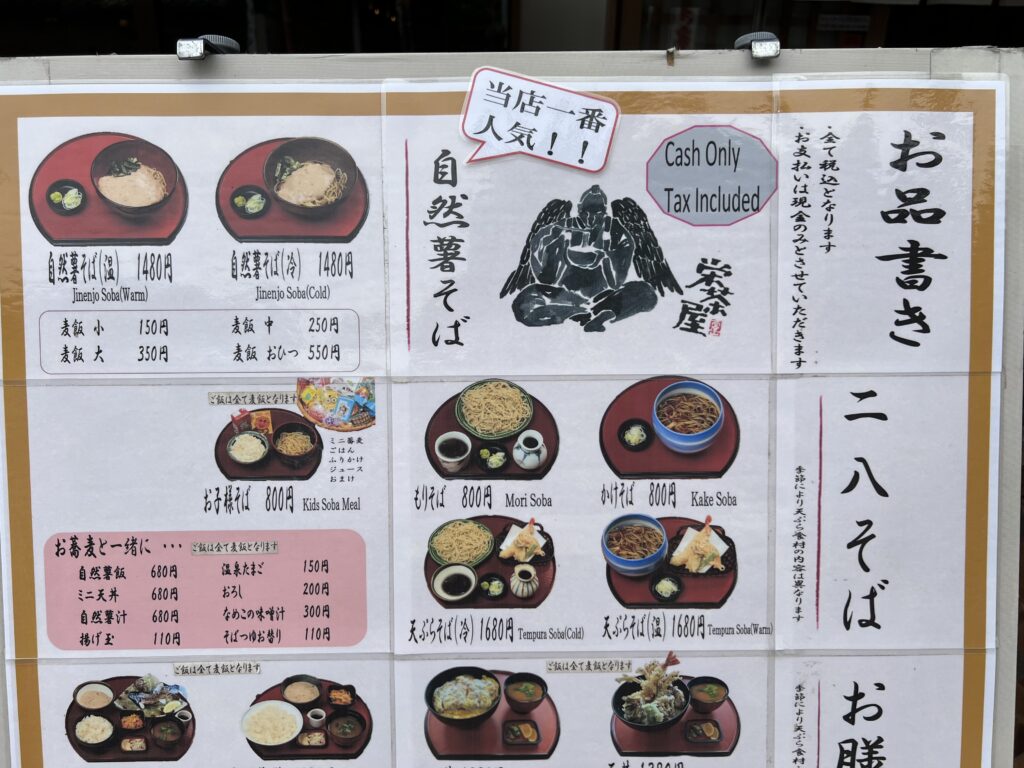 お品書き
・全て税込となります
・お支払いは現金のみとさせていただきます
Cash Only
Tax Included
栄茶屋
当店一番
人気！！
自然薯そば
自然薯そば(温) 1480円
Jinenjo Soba(Warm)
自然薯そば(冷) 1480円
Jinenjo Soba(Cold)
麦飯 小 150円
麦飯 中 250円
麦飯 大 350円
麦飯 おひつ 550円
二八そば
季節により天ぷら食材の内容は異なります
もりそば 800円 Mori Soba
かけそば 800円 Kake Soba
天ぷらそば(冷) 1680円 Tempura Soba(Cold)
天ぷらそば(温) 1680円 Tempura Soba(Warm)
ご飯は全て麦飯となります
ミニ蕎麦
ごはん
ふりかけ
ジュース
おまけ
お子様そば 800円 Kids Soba Meal
お蕎麦と一緒に ･･･ ご飯は全て麦飯となります
自然薯飯 680円
ミニ天丼 680円
自然薯汁 680円
揚げ玉 110円
温泉たまご 150円
おろし 200円
なめこの味噌汁 300円
そばつゆお替り 110円
お膳
ご飯は全て麦飯となります
ご飯は全て麦飯となります